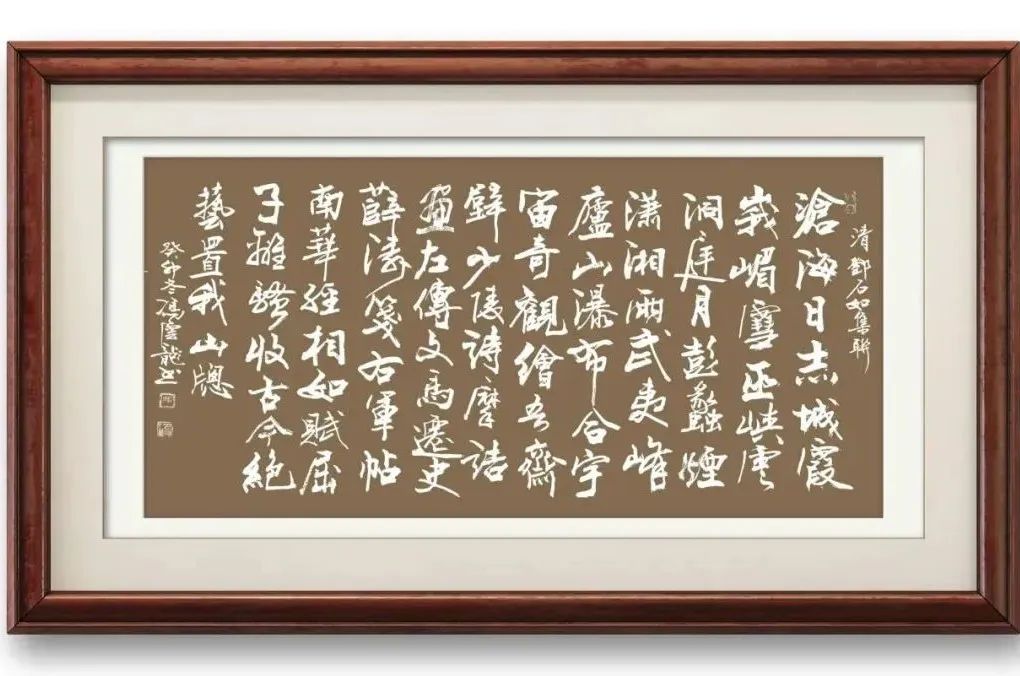 清鄧石如集聯
滄海日赤城霞
峩嵋雪巫峽雲
洞庭月彭蠡煙
瀟湘雨武夷峰
廬山瀑布合宇
宙奇觀繪吾齋
壁少陵詩摩詰
畫左傳文馬遷史
薛濤箋右軍帖
南華經相如賦屈
子離騷收古今絕
藝置我山牕
癸卯冬馮雲龍书